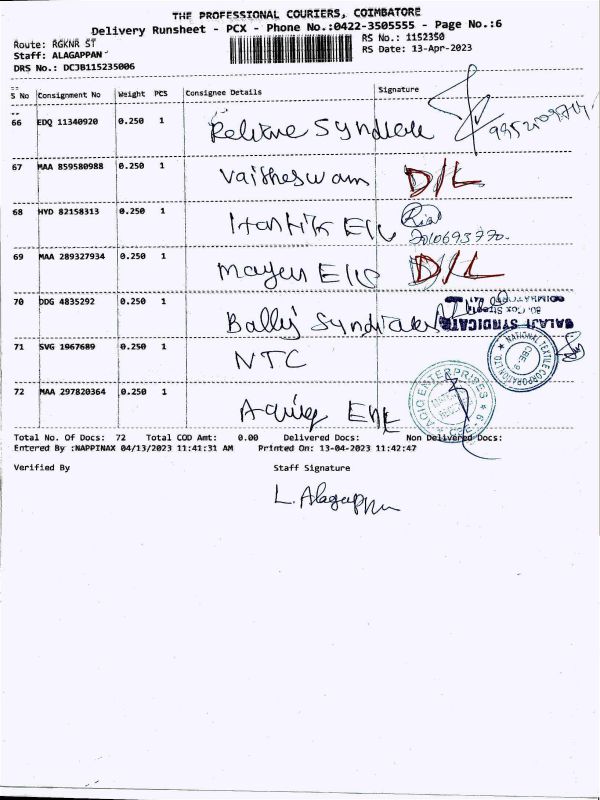 THE PROFESSIONAL COURIERS, COIMBATORE
Delivery Runsheet - PCX - Phone No.:0422-3505555 - Page No.:6
Route: RGKNR ST
RS No.: 1152350
Staff: ALAGAPPAN
RS Date: 13-Apr-2023
DRS No.: DCJB115235006
S No Consignment No Weight PCS Consignee Details Signature
66 EDQ 11340920 0.250 1 Reliane Syndicate
67 MAA 859580988 0.250 1 Vaitheswam D/L
68 HYD 82158313 0.250 1
69 MAA 289327934 0.250 1 D/L
70 DDG 4835292 0.250 1 Balaji Syndicate
BALAJI SYNDICATE
80, Cox Street
COIMBATORE
71 SVG 1967689 0.250 1 NTC
NATIONAL TEXTILE CORPORATION LTD.
CBE-9
72 MAA 297820364 0.250 1
ENTERPRISES
Total No. Of Docs: 72 Total COD Amt: 0.00 Delivered Docs: Non Delivered Docs:
Entered By :NAPPINAX 04/13/2023 11:41:31 AM Printed On: 13-04-2023 11:42:47
Verified By Staff Signature
L. Alagappan